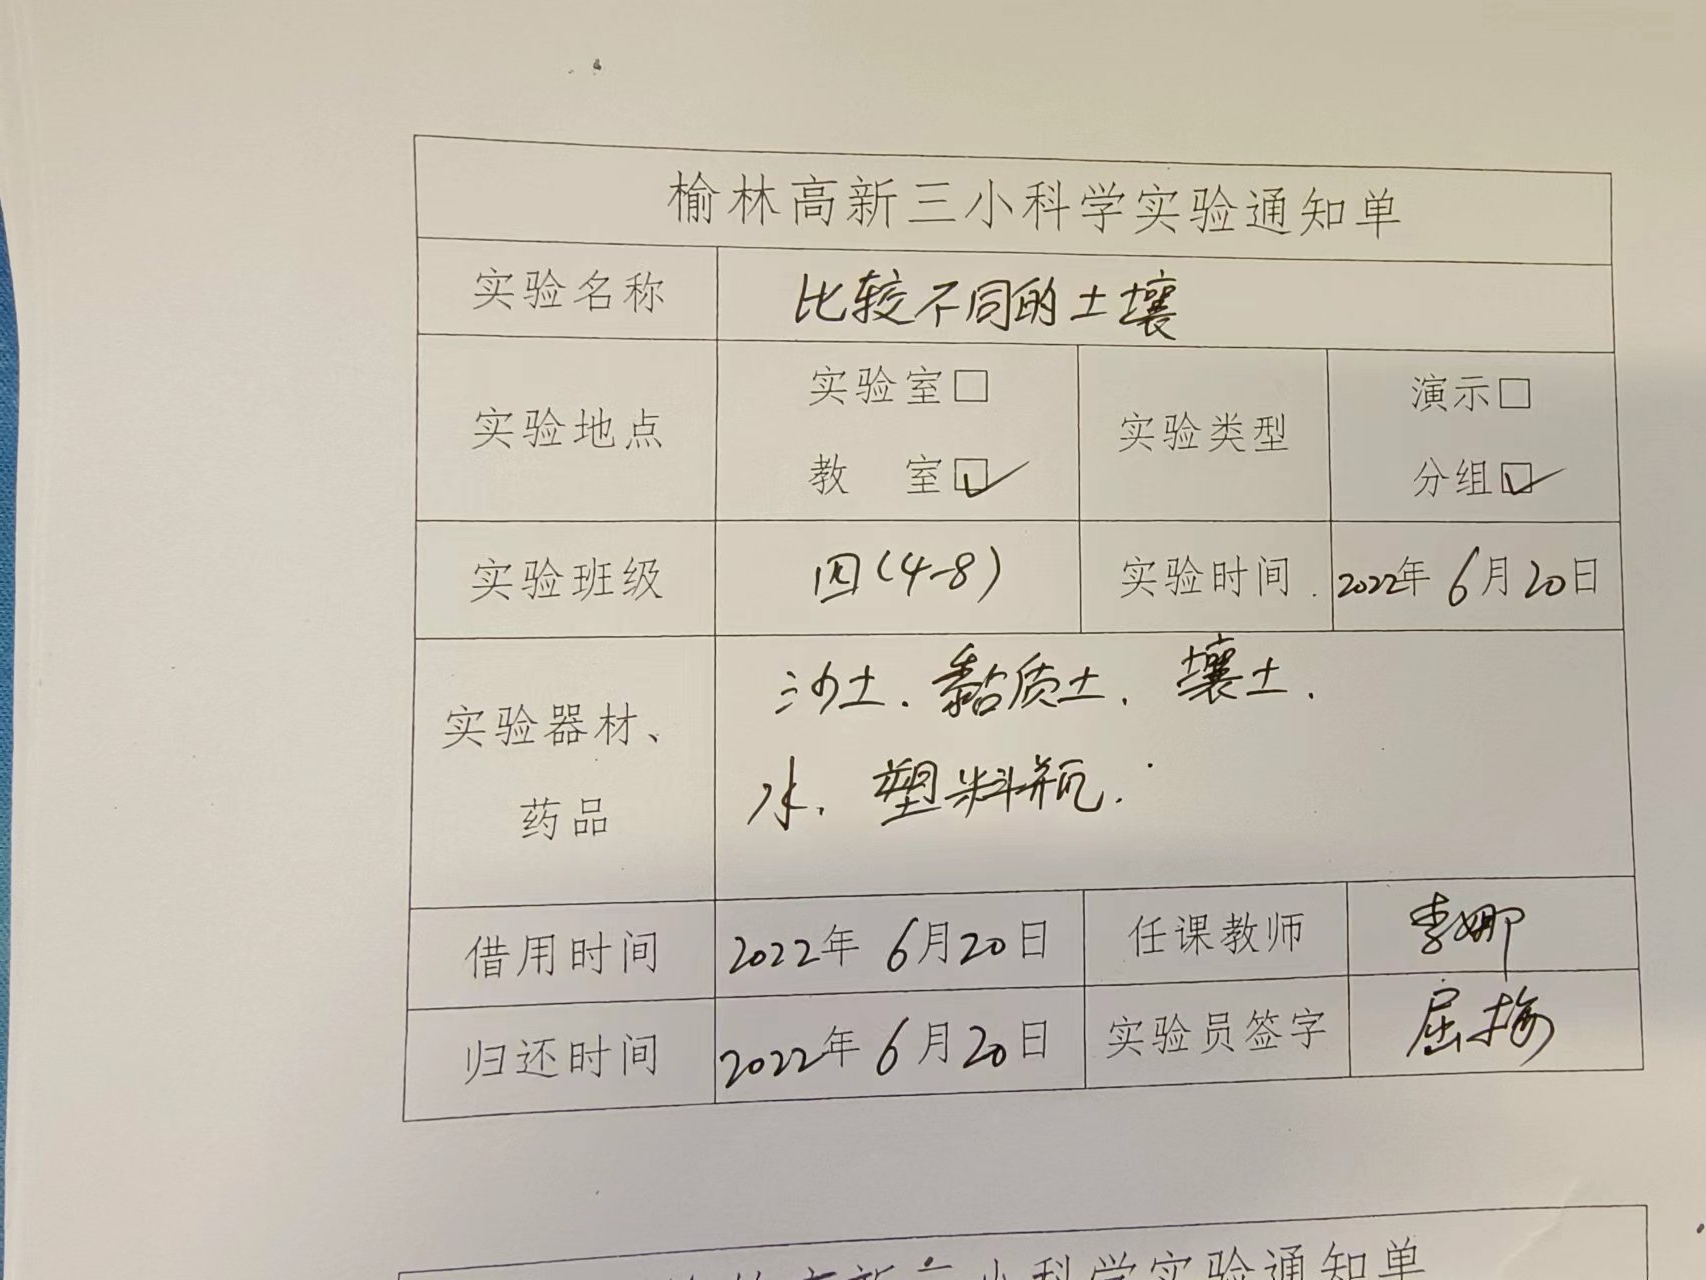 榆林高新三小科学实验通知单
实验名称 比较不同的土壤
实验地点 实验室□ 教 室☑ 实验类型 演示□ 分组☑
实验班级 四(4-8) 实验时间 2022年 6月20日
实验器材、药品 沙土、黏质土、壤土、
水、塑料瓶.
借用时间 2022年 6月20日 任课教师 李娜
归还时间 2022年 6月20日 实验员签字 屈梅
高新三小科学实验通知单